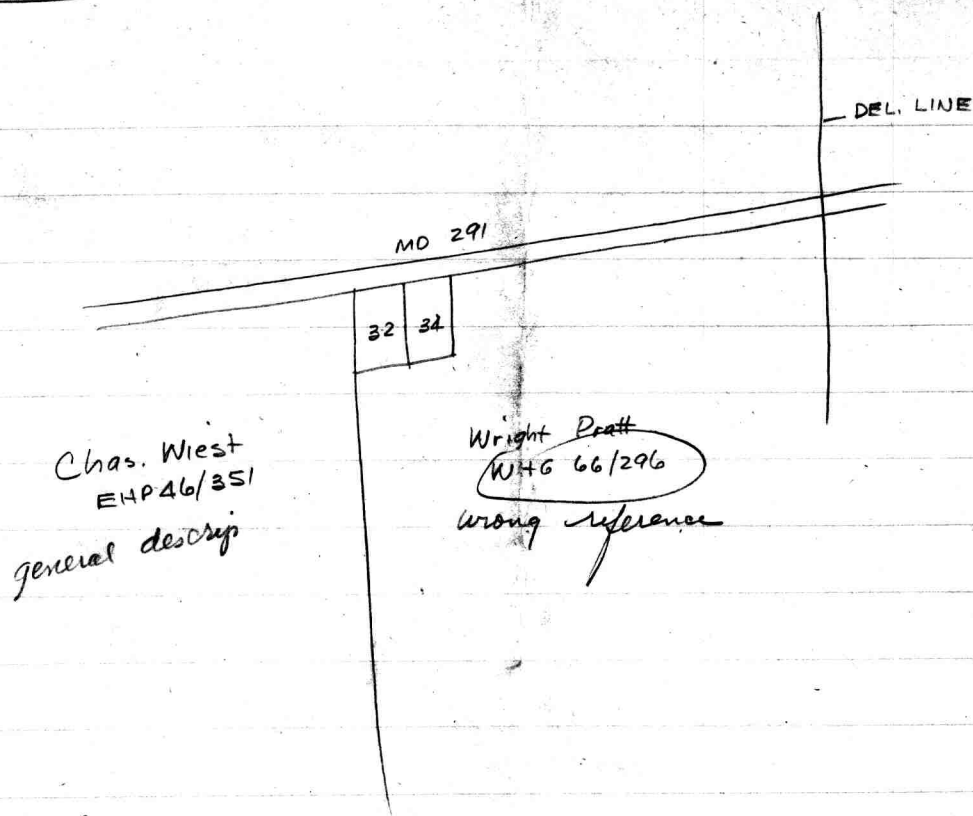 DEL. LINE
MD 291
32 34
Chas. Wiest
EHP 46/351
general descrip
Wright Pratt
WHG 66/296
wrong reference